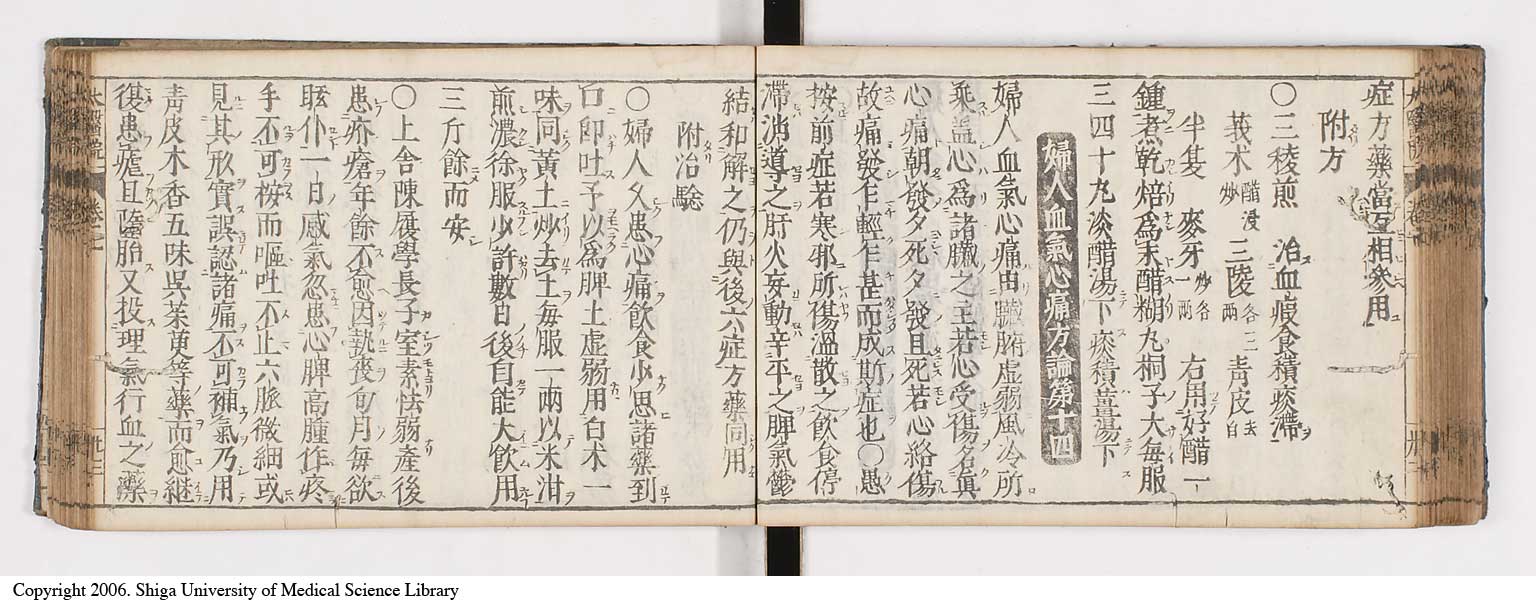 症方藥當互相參用
附方
〇三稜煎 治血瘕食積痰滯
莪朮 醋浸炒 三陵 各三兩 青皮 去白
半夏 麥牙 炒各一兩 右用好醋一
鍾煮乾焙爲末醋糊丸桐子大每服
三四十丸淡醋湯下痰積薑湯下
婦人血氣心痛方論第十四
婦人血氣心痛由臟腑虛弱風冷所
乘盖心爲諸臟之主若心受傷名眞
心痛朝發夕死夕發旦死若心絡傷
故痛發乍輕乍甚而成斯症也〇愚
按前症若寒邪所傷溫散之飲食停
滯消導之肝火妄動辛平之脾氣鬱
結和解之仍與後六症方藥同用
附治驗
〇一婦人久患心痛飲食少思諸藥到
口卽吐予以爲脾土虛弱用白朮一
味同黃土炒去土每服一兩以米泔
煎濃徐服少許數日後自能大飲用
三斤餘而安
〇上舍陳履學長子室素怯弱產後
患疥瘡年餘不愈因執喪旬月每欲
眩仆一日感氣忽患心脾高腫作疼
手不可桉而嘔吐不止六脈微細或
見其形實誤認諸痛不可補氣乃用
青皮木香五味吳茱萸等藥而愈繼
復患瘧且墮胎又投理氣行血之藥